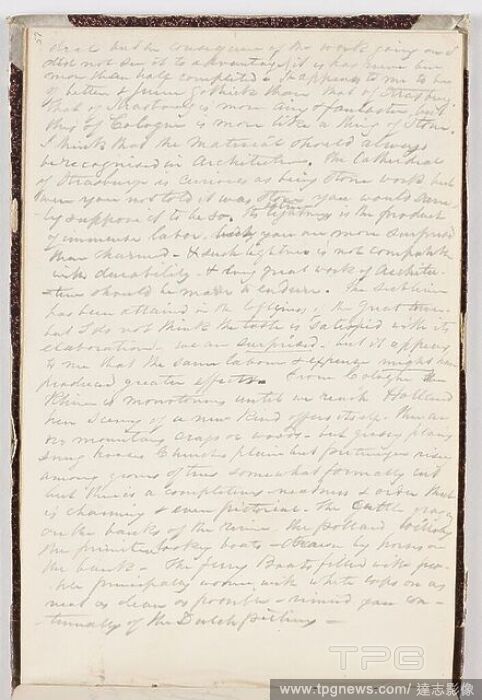 57
but in consequence of the work going on I
did not see it to advantage, it is
more than half completed & It appears to me to be
of better & purer Gothick than that of Strasburg.
that of Strasburg is more airy & but
this of Cologne is more like a thing of Stone.
I think that the material should always
be recognised in Architecture. The Cathedral
of Strasburg is curious as being Stone work but
were you not told it was Stone you would
suppose it to be so. Its lightness is the product
of immense labor, you are more surprised
than charmed - & such lightness is not compatible
with durability - & any great work of Architec-
ture should be made to endure. The sublime
has been attained in the loftiness of the great
but I do not think the taste is satisfied with its
elaboration. we are surprised - but it appears
to me that the same labour & expense might have
produced greater effects. From Cologne the
Rhine is monotonous until we reach Holland
here Scenery of a new kind offers itself. There are
no mountains crags or woods - but grassy plains
snug houses Churches plain but picturesque rise
among groves of trees somewhat formally cut
but there is a completeness neatness & order that
is charming & even pictorial. The Cattle graze
on the banks of the river. the pollard
the primitive looking boats - drawn by horses on
the bank - The ferry Boats filled with peo-
ple principally women with white caps on as
neat as clean as possible - remind you con-
tinually of the Dutch pictures -
TPG
www.tpgnews.com / 達志影像